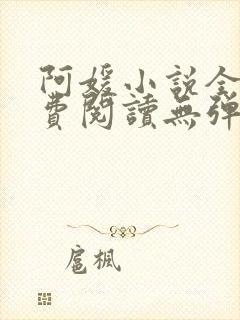 阿媛小說全
費閱讀無彈
扈楓